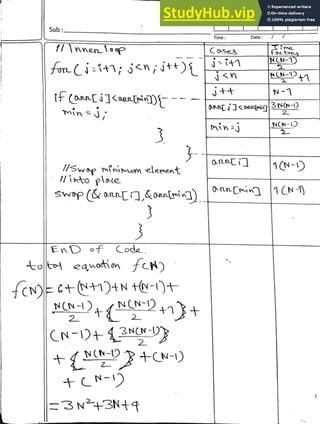 StudyHub.vip
Experienced writers
On-time delivery
24/7 support
ORDER NOW
Sub:
Time: Date: / /
// Innerloop
for(j=i+1; j<n; j++){
if (arr[j]<arr[min]){
min = j;
}
}
//Swap minimum element
// into place
swap(&arr[i],&arr[min])
}
}
Cases Time Factors
j=i+1 N(N-1)/2
j<n N(N-1)/2 +1
j++ N-1
arr[j]<arr[min] 3N(N-1)/2
min=j N(N-1)/2
arr[i] 1(N-1)
arr[min] 1(N-1)
END of Code.
total equation f(N)
f(N)= 6+(N+1)+N+(N-1)+
N(N-1)/2 +{N(N-1)/2 +1}+
(N-1)+{3N(N-1)/2}
+{N(N-1)/2}+(N-1)
+(N-1)
=3N²+3N+9
1